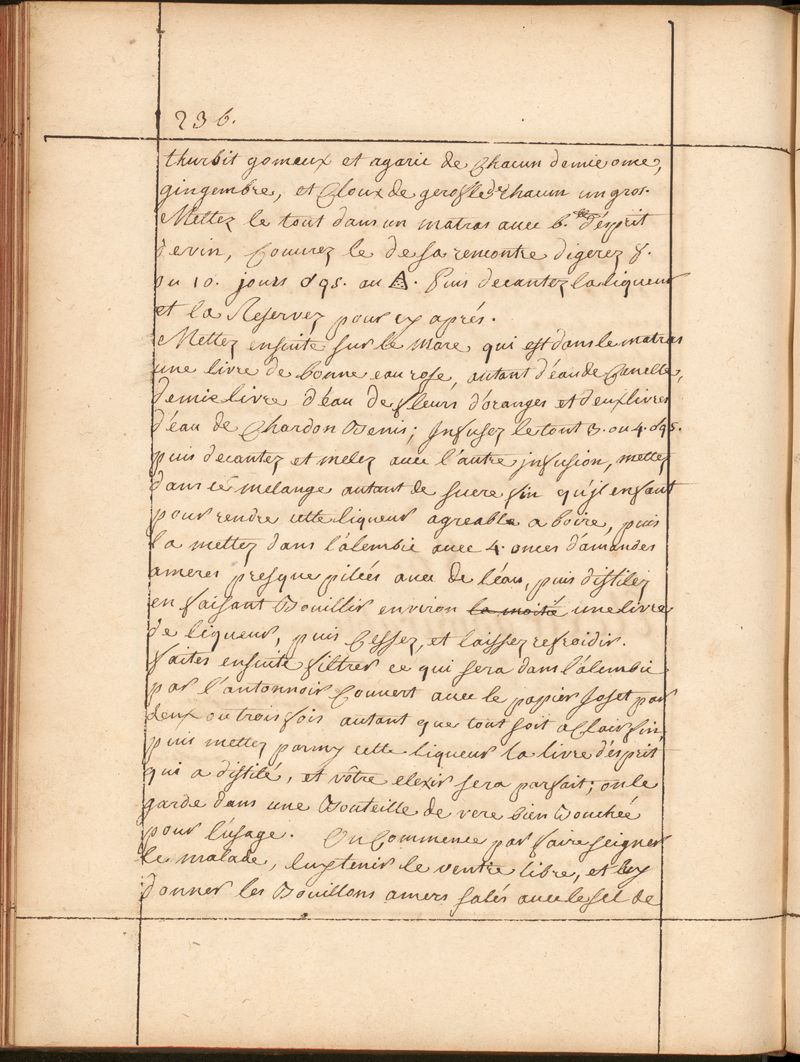 236.
thurbit gomeux et agaric de Chacun demie once,
gingembre, et Cloux de gerofle de Chacun un gros.
Mettez le tout dans un matras avec 6. d'esprit
de vin, Couvrez le de sa rencontre digerez 8.
ou 10. jours au Puis decantez la liqueur
et la Reservez pour cy aprés.
Mettez ensuite sur le marc qui est dans le matras
une livre de bonne eau rose, autant d'éau de Canelle,
demie livre d'éau de fleurs d'oranges et deux livres
d'éau de Chardon Benis; Infusez le tout 3. ou 4.
puis decantez et melez avec l'autre infusion, mettez
dans cé melange autant de sucre fin qu'il en faut
pour rendre cette liqueur agreable a boire, puis
la mettez dans l'álembic avec 4. onces d'amandes
ameres presque pilées avec de léau, puis distilez
en faisant Bouillir environ la moitié une livre
de liqueur, puis Cessez, et laissez refroidir.
faites ensuite filtrer ce qui sera dans l'álembic
par l'antonnoir Couvert avec le papier Josef par
deux ou trois fois autant que tout soit
puis mettez parmy cette liqueur la livre d'esprit
qui a distilé, et vôtre elexir sera parfait; on le
garde dans une Bouteille de vere bien Bouchée
pour lúsage. On Commence par faire seigner
le malade, luy tenir le ventre libre, et luy
donner les Bouillons amers salés avec le sel de